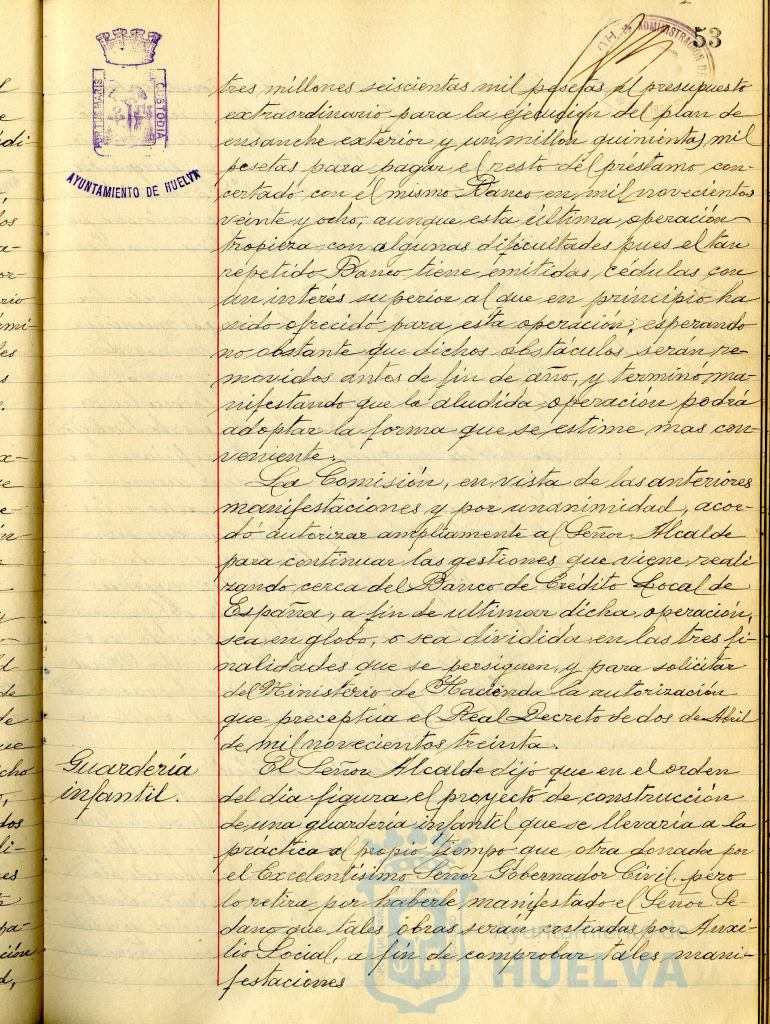 53
AYUNTAMIENTO DE HUELVA
tres millones seiscientas mil pesetas al presupuesto
extraordinario para la ejecución del plan de
ensanche exterior y un millón quinientas mil
pesetas para pagar el resto del préstamo con-
certado con el mismo Banco en mil novecientos
veinte y ocho, aunque esta última operación
tropieza con algunas dificultades pues el tan
repetido Banco tiene emitidas cédulas con
un interés superior al que en principio ha
sido ofrecido para esta operación, esperando
no obstante que dichos obstáculos serán re-
movidos antes de fin de año, y terminó ma-
nifestando que la aludida operación podrá
adoptar la forma que se estime mas con-
veniente.
La Comisión, en vista de las anteriores
manifestaciones y por unanimidad, acor-
dó autorizar ampliamente al Señor Alcalde
para continuar las gestiones que viene reali
zando cerca del Banco de Crédito Local de
España, a fin de ultimar dicha operación,
sea en globo, o sea dividida en las tres fi-
nalidades que se persiguen, y para solicitar
del Ministerio de Hacienda la autorización
que preceptúa el Real Decreto de dos de Abril
de mil novecientos treinta.
Guardería
infantil.
El Señor Alcalde dijo que en el orden
del dia figura el proyecto de construcción
de una guardería infantil que se llevaría a la
practica al propio tiempo que otra donada por
el Excelentísimo Señor Gobernador Civil, pero
lo retira por haberle manifestado el Señor Se-
dano que tales obras serán costeadas por Auxi-
lio Social, a fin de comprobar tales mani-
festaciones
Ayuntamiento de
HUELVA